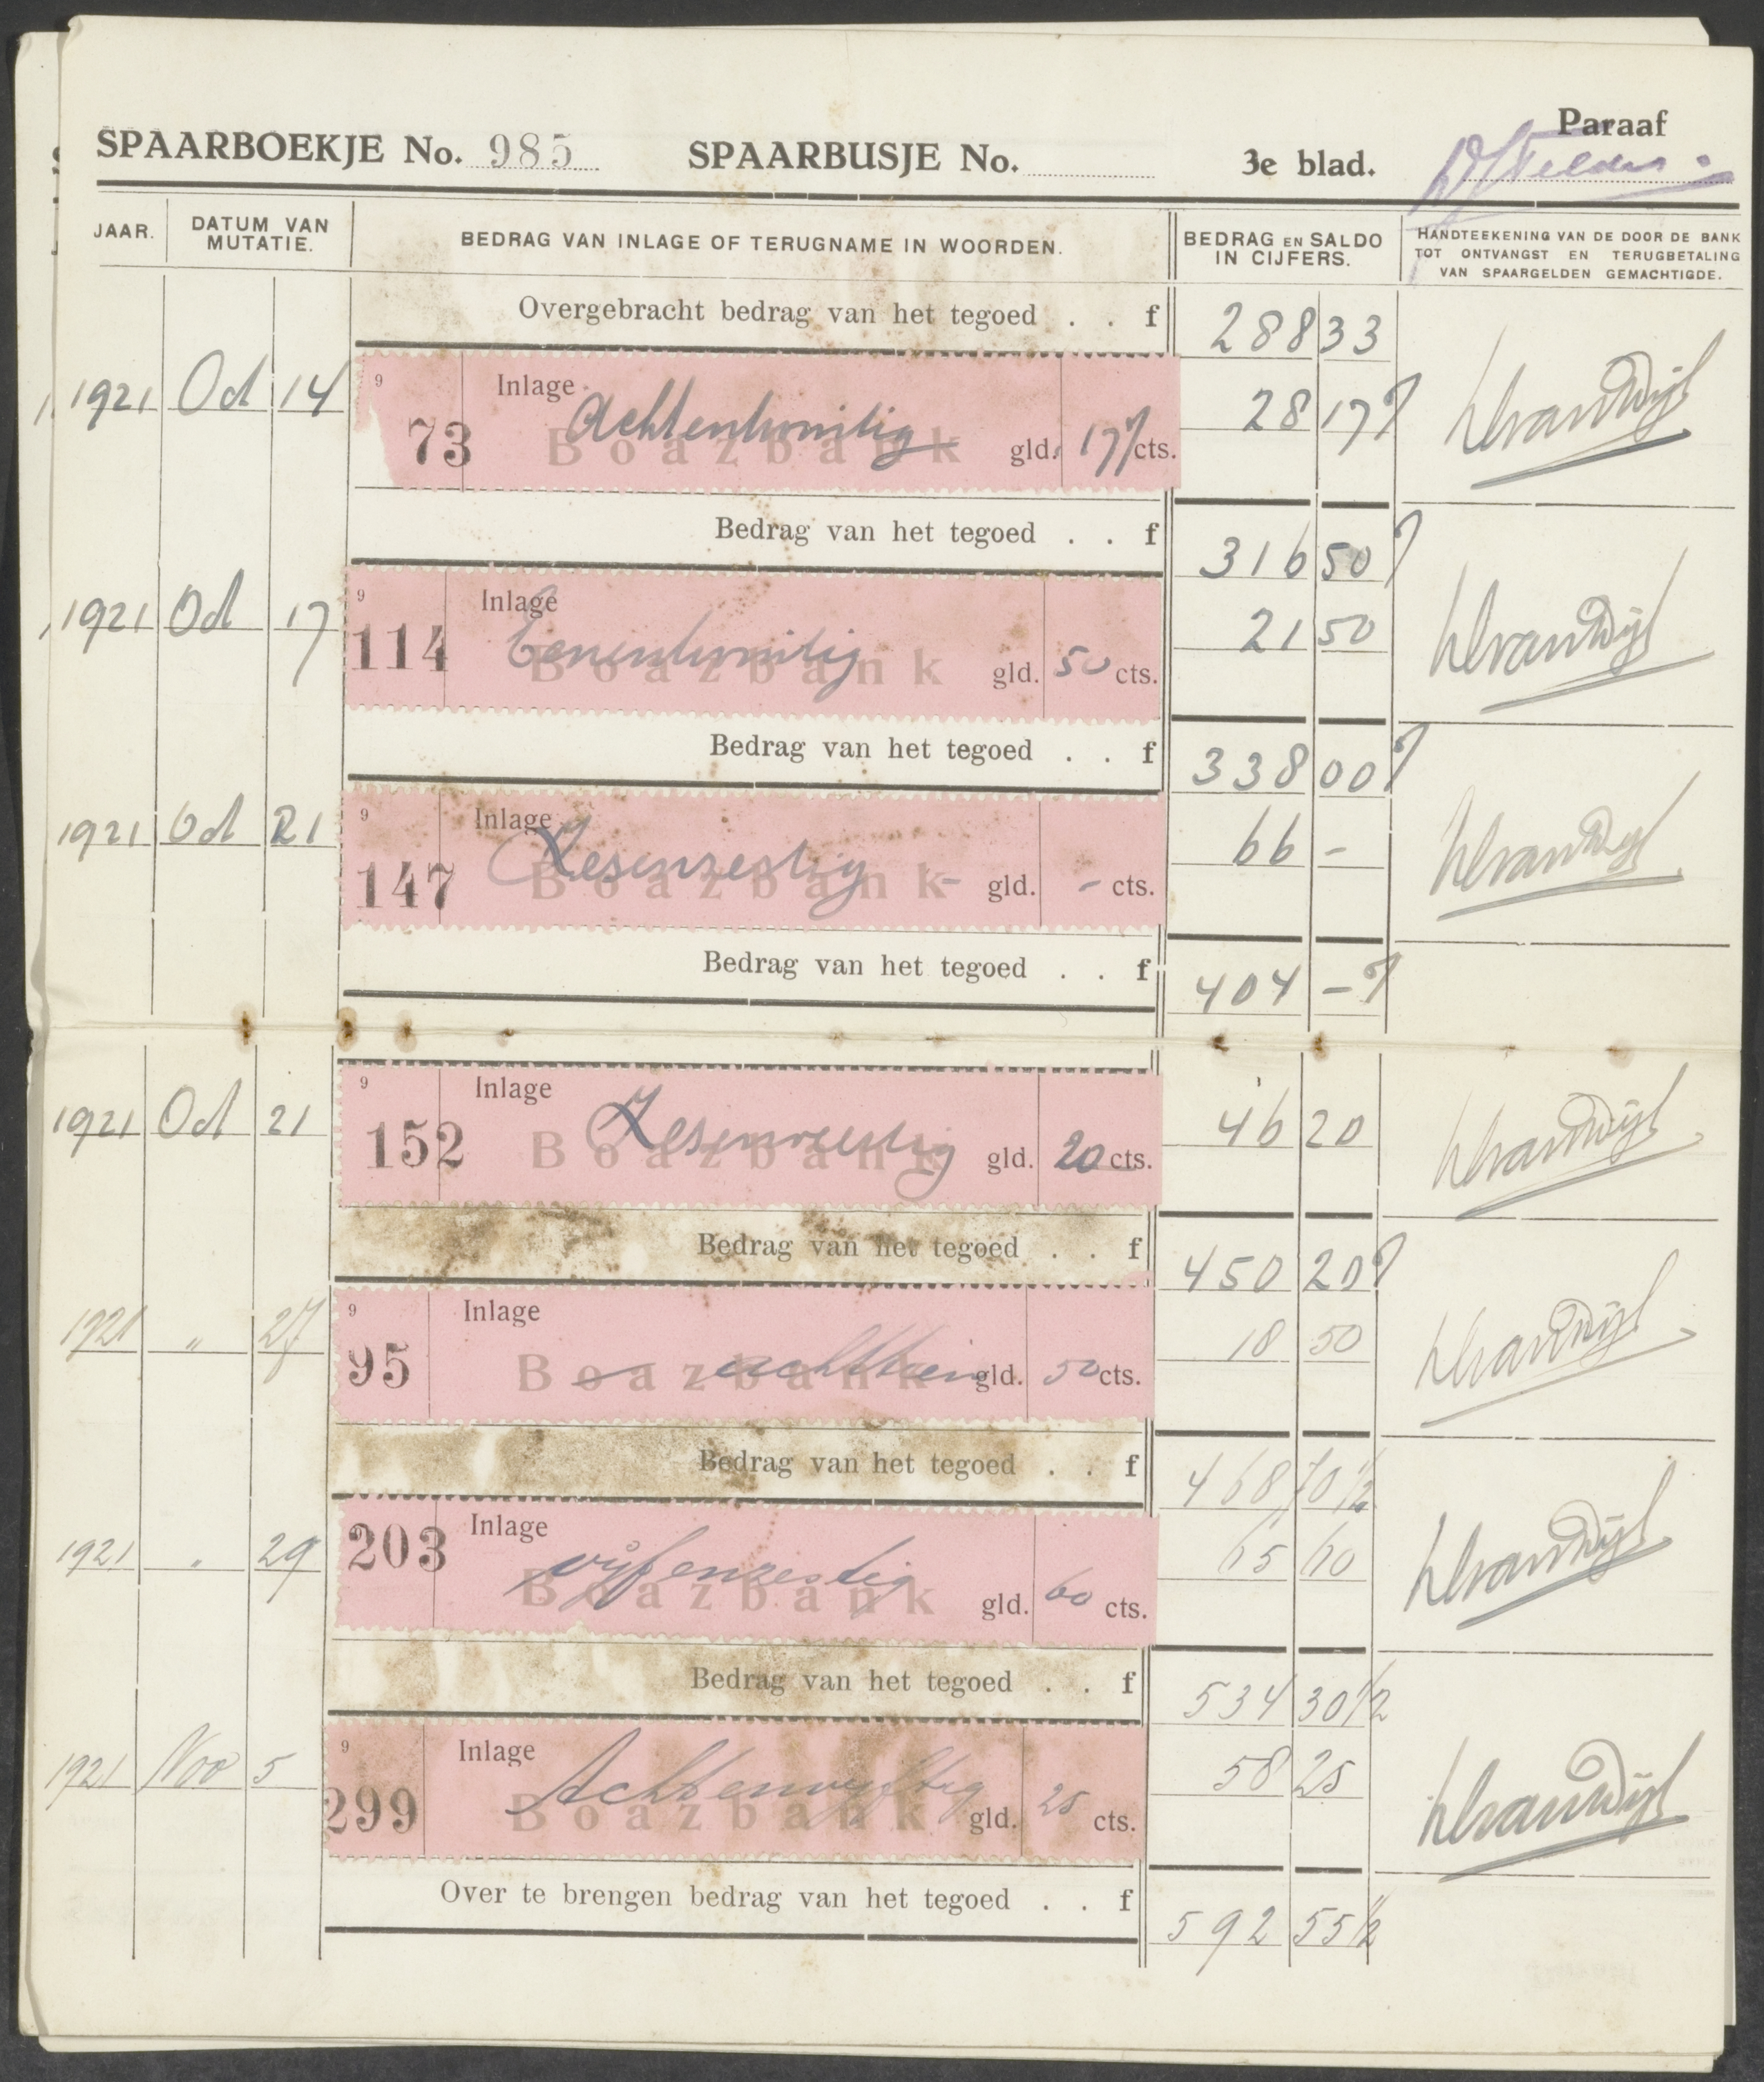 SPAARBOEKJE No. 985 SPAARBUSJE No. 3e blad. Paraaf
JAAR. DATUM VAN MUTATIE. BEDRAG VAN INLAGE OF TERUGNAME IN WOORDEN. BEDRAG EN SALDO IN CIJFERS. HANDTEEKENING VAN DE DOOR DE BANK TOT ONTVANGST EN TERUGBETALING VAN SPAARGELDEN GEMACHTIGDE.
Overgebracht bedrag van het tegoed . . f 288 33
1921 Oct 14 9 73 Inlage Achtentwintig Boazbank gld. 17 cts. 28 17
Bedrag van het tegoed . . f 316 50
1921 Oct 17 9 114 Inlage Eenentwintig Boazbank gld. 50 cts. 21 50
Bedrag van het tegoed . . f 338 00
1921 Oct 21 9 147 Inlage Zesenzestig Boazbank - gld. - cts. 66 -
Bedrag van het tegoed . . f 404 -
1921 Oct 21 9 152 Inlage Zesenveertig Boazbank gld. 20 cts. 46 20
Bedrag van het tegoed . . f 450 20
1921 " 27 9 95 Inlage achttien Boazbank gld. 50 cts. 18 50
Bedrag van het tegoed . . f 468 70 1/2
1921 " 29 203 Inlage vijfenzestig Boazbank gld. 60 cts. 65 60
Bedrag van het tegoed . . f 534 30 1/2
1921 Nov 5 9 299 Inlage Achtenvijftig Boazbank gld. 25 cts. 58 25
Over te brengen bedrag van het tegoed . . f 592 55 1/2